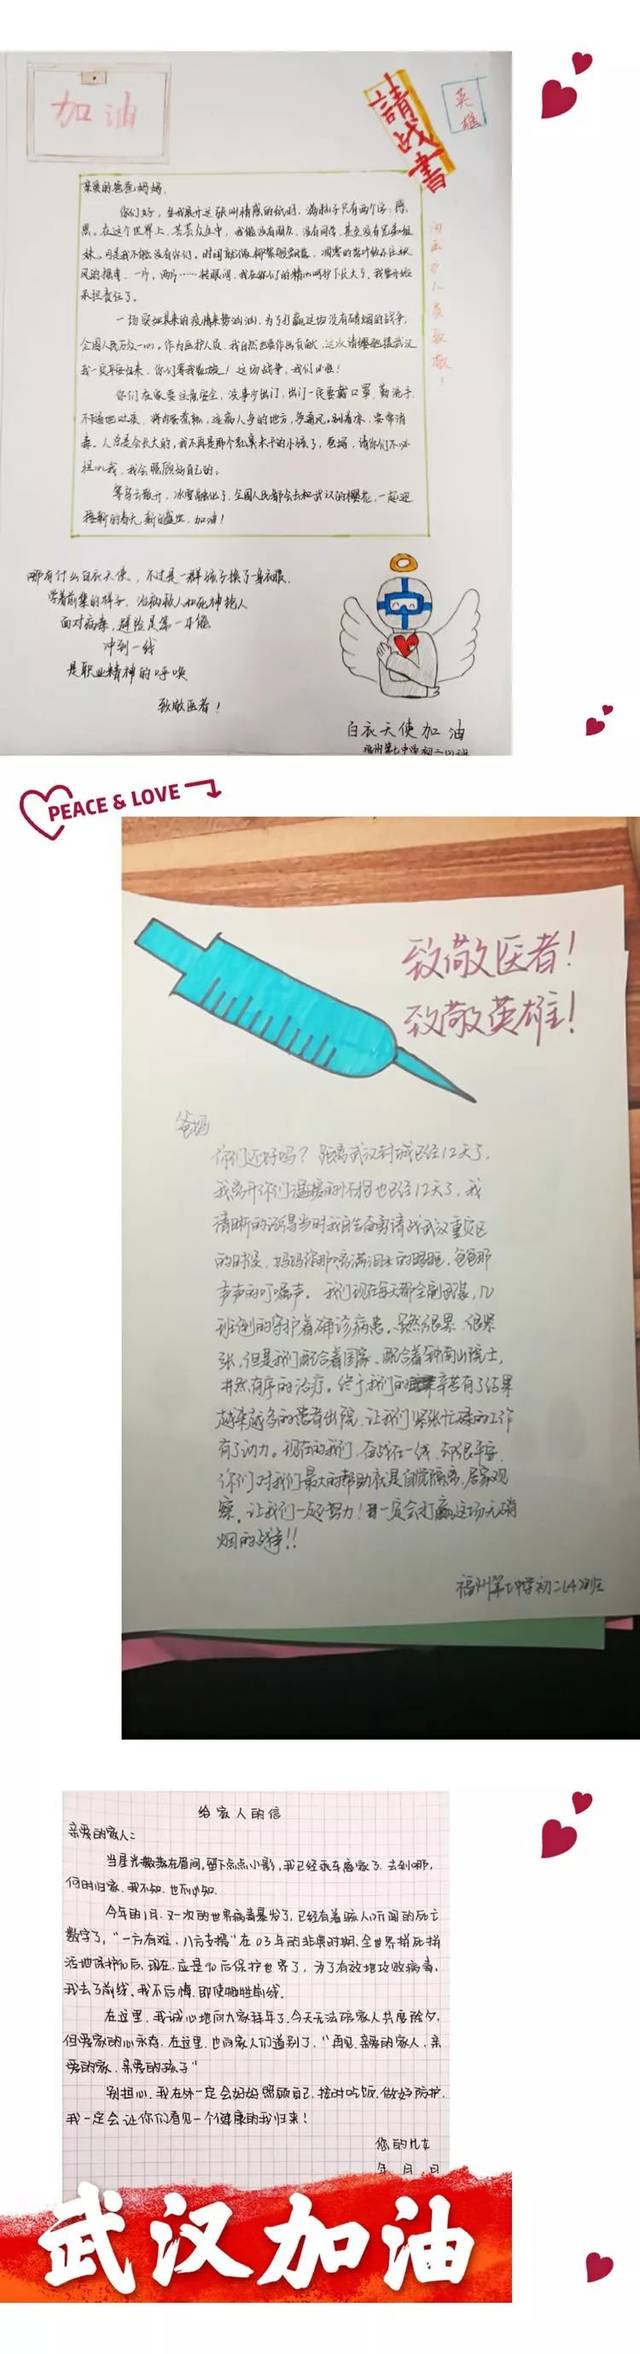 加油
請战書
英雄
向医护人员致敬!
亲爱的爸爸妈妈,
你们好,当我展开这张叫情感的纸时,满脑子只有两个字,感
恩。在这个世界上,芸芸众生中,我能没有朋友,没有同学,甚至没有兄弟姐
妹。可是我不能没有你们。
风的摧毒,一片,两片……转眼间,我在你们的精心呵护下长大了,我要开始
承担责任了。
一场突如其来的疫情来势汹汹,为了打赢这场没有硝烟的战争,
全国人民万众一心。作为医护人员,我自然也要作出贡献,这次请缨驰援武汉
我一定平安归来,你们等我凯旋!这场战争,我们必胜!
你们在家要注意安全,没事少出门,出门一定要戴口罩,勤洗手,
毒。人总是会长大的,我不再是那个乳臭未干的小孩了,爸妈,请你们不必
担心我,我会照顾好自己的。
等寒云散开,冰雪融化了,全国人民都会去和武汉的樱花,一起迎
接新的春天,新的盛世,加油!
哪有什么白衣天使,不过是一群孩子换了身衣服,
学着前辈的样子,治病救人和死神抢人
面对病毒,避险是第一本能
冲到一线
是职业精神的呼唤
致敬医者!
白衣天使加油
福州第七中学初二(4)班
PEACE & LOVE
致敬医者!
致敬英雄!
爸妈
你们还好吗?距离武汉封城已经12天了,
我离开你们温暖的怀抱也已经12天了,我
清晰的记得当时我自告奋勇请战武汉重灾区
的时候,妈妈你那噙满泪水的眼眶,爸爸那
声声的叮嘱声。我们现在每天都全副武装,几
班倒的守护着确诊病患。虽然很累、很紧
张,但是我们配合着国家、配合着钟南山院士,
井然有序的治疗。终于我们的辛苦有了结果
越来越多的患者出院,让我们紧张忙碌的工作
有了动力。现在的我们,奋战在一线,都很平安,
你们对我们最大的帮助就是自觉隔离,居家观
察,让我们一起努力!一定会打赢这场无硝
烟的战争!!
福州第七中学初二(4)班
给家人的信
亲爱的家人:
当星光散落在眉间,留下点点小影,我已经乘车离家了。去到哪,
何时归家,我不知,也不必知。
今年的1月,又一次的世界病毒爆发了,已经有着骇人听闻的死亡
数字了,“一方有难,八方支援”在03年的非典时期,全世界拼死拼
活地保护90后,现在,应是90后保护世界了,为了有效地攻败病毒,
我去了前线。我不后悔,即使牺牲前线。
在这里,我诚心地向大家拜年了,今天无法陪家人共度除夕,
但爱家的心永存,在这里,也向家人们道别了,“再见,亲爱的家人,亲
爱的家,亲爱的孩子”
别担心,我在外一定会好好照顾自己,按时吃饭,做好防护,
我一定会让你们看见一个健康的我归来!
您的儿女
年 月 日
武汉加油